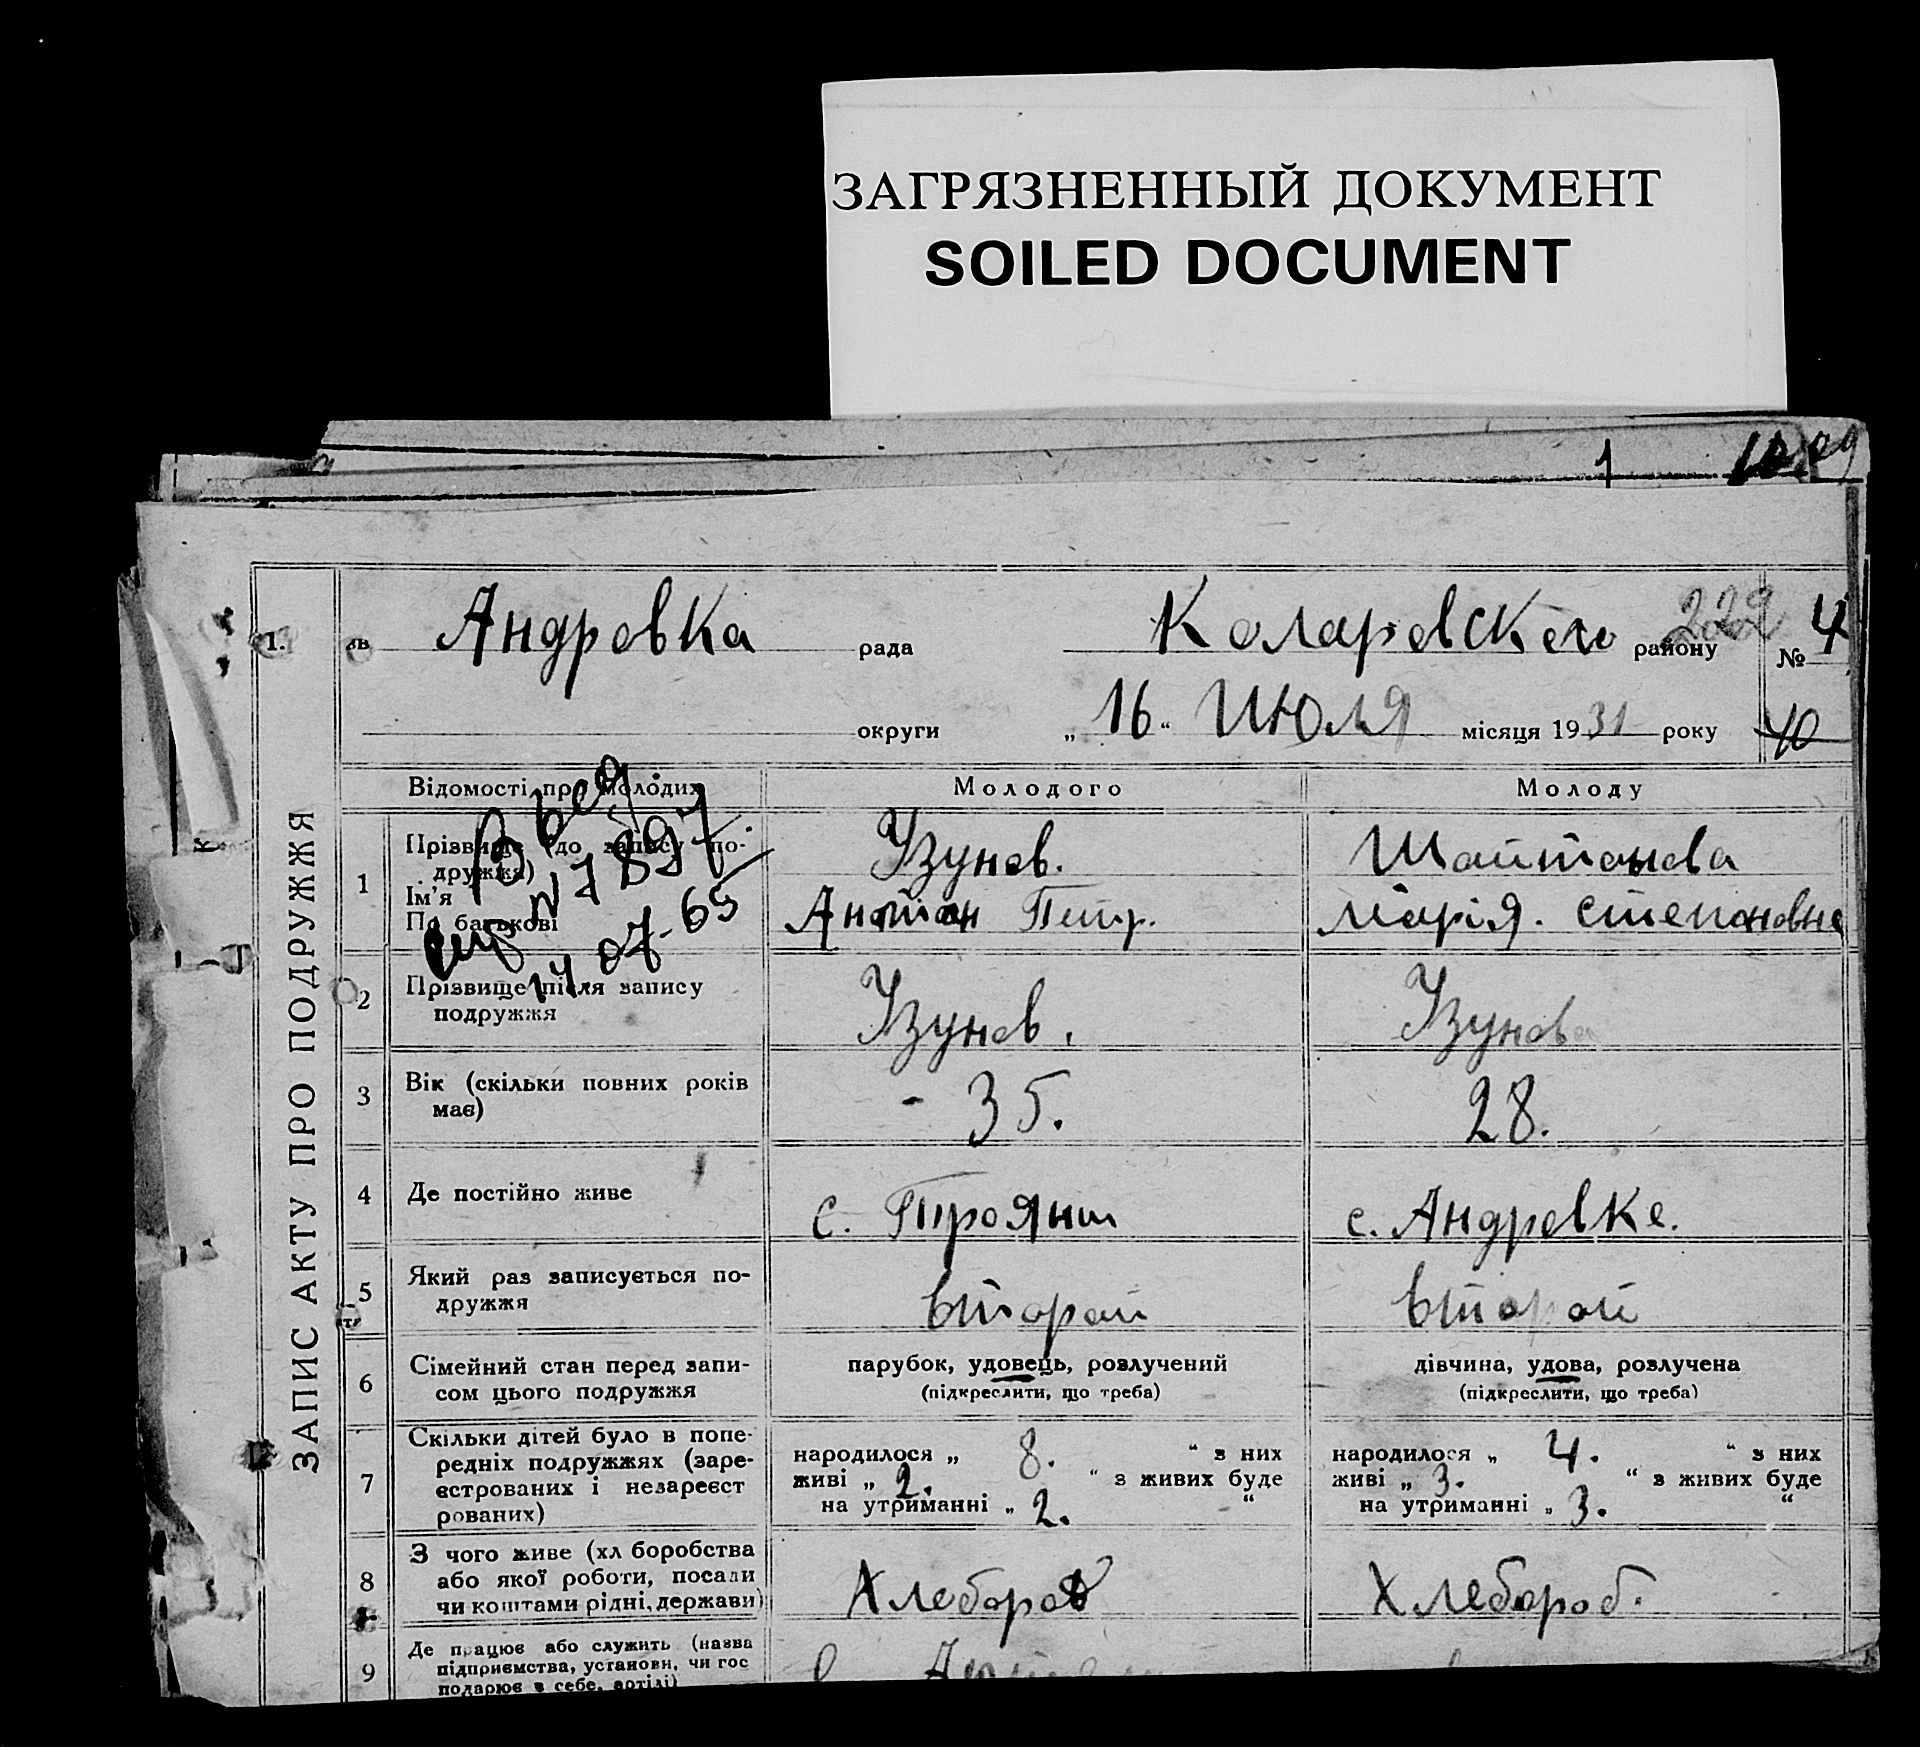 ЗАГРЯЗНЕННЫЙ ДОКУМЕНТ
SOILED DOCUMENT
1
ЗАПИС АКТУ ПРО ПОДРУЖЖЯ
1. Андровка рада Коларовского району № 4
229
округи „16“ Июля місяця 1931 року
40
Відомості про молодих Молодого Молоду
1 Прізвище (до запису подружжя) Узунов. Шайтанова
Ім'я
По батькові Антон Петр. Марія. Степановна
N 7897.
14 07-65
2 Прізвище після запису Узунов. Узунова
подружжя
3 Вік (скільки повних років - 35. 28.
має)
4 Де постійно живе с. Трояни с. Андровке.
5 Який раз записується по- второй второй
дружжя
6 Сімейний стан перед запи- парубок, удовець, розлучений дівчина, удова, розлучена
сом цього подружжя (підкреслити, що треба) (підкреслити, що треба)
7 Скільки дітей було в попе-
редніх подружжях (заре- народилося „ 8. “ з них народилося „ 4. “ з них
єстрованих і незареєст живі „ 2. “ з живих буде живі „ 3. “ з живих буде
рованих) на утриманні „ 2. “ на утриманні „ 3. “
8 З чого живе (хл боробства
або якої роботи, посади Хлебороб Хлебороб.
чи коштами рідні, держави)
9 Де працює або служить (назва
підприємства, установи, чи гос
подарює в себе, артілі)